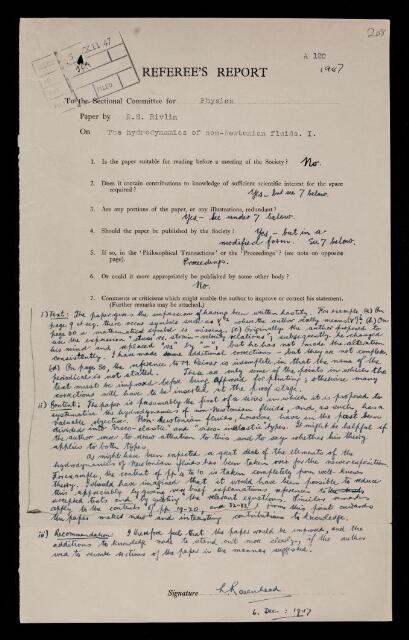 208
11 47
FILED
A 120
1947
REFEREE'S REPORT
To the Sectional Committee for Physics
Paper by R.S. Rivlin
On The hydrodynamics of non-Newtonian fluids. I.
1. Is the paper suitable for reading before a meeting of the Society? No.
2. Does it contain contributions to knowledge of sufficient scientific interest for the space
required? Yes - but see 7 below.
3. Are any portions of the paper, or any illustrations, redundant?
Yes - see under 7 below.
4. Should the paper be published by the Society? Yes - but in a
modified form. See 7 below.
5. If so, in the 'Philosophical Transactions' or the 'Proceedings'? (see note on opposite
page). Proceedings.
6. Or could it more appropriately be published by some other body?
No.
7. Comments or criticisms which might enable the author to improve or correct his statement.
(Further remarks may be attached.)
i) Text: The paper gives the impression of having been written hastily. For example (a) On
page 9 et seq. there occur symbols such as when the author really means (b) On
page 30 a mathematical symbol is missing. (c) Originally the author proposed to
use the expression "stress vs. strain-velocity relations"; subsequently he changed
his mind and replaced "vs" by but he has not made the alteration
consistently. I have made some additional corrections - but they are not complete.
(d) On page 50, the reference to M. Reiner is incomplete in that the name of the
periodical is not stated. These are only some of the points in which the
text must be improved before being approved for printing; otherwise many
corrections will have to be inserted at the proof stage.
ii) Content: The paper is presumably the first of a series in which it is proposed to
systematise the hydrodynamics of non-Newtonian fluids, and as such has a
valuable objective. Non-Newtonian fluids, however, have in the past been
divided into "visco-elastic" and types. It might be helpful if
the author was to draw attention to this and to say whether his theory
applies to both types.
As might have been expected a great deal of the elements of the
hydrodynamics of Newtonian fluids has been taken over for the newer exposition.
For example, the content of pp. 4 to 10 is taken completely from well-known
theory. I should have imagined that it would have been possible to reduce
this appreciably by giving very brief explanations references to
accepted texts and by quoting the relevant equations. Similar remarks
apply to the contents of pp. 19-20, and 32-33. From this point onwards
the paper makes new and interesting contributions to knowledge.
iii) Recommendation: I therefore feel that the paper would be improved, and the
additions to knowledge made to stand out more clearly, if the author
was to rewrite sections of the paper in the manner suggested.
Signature L. Rosenhead
6. Dec: 1947